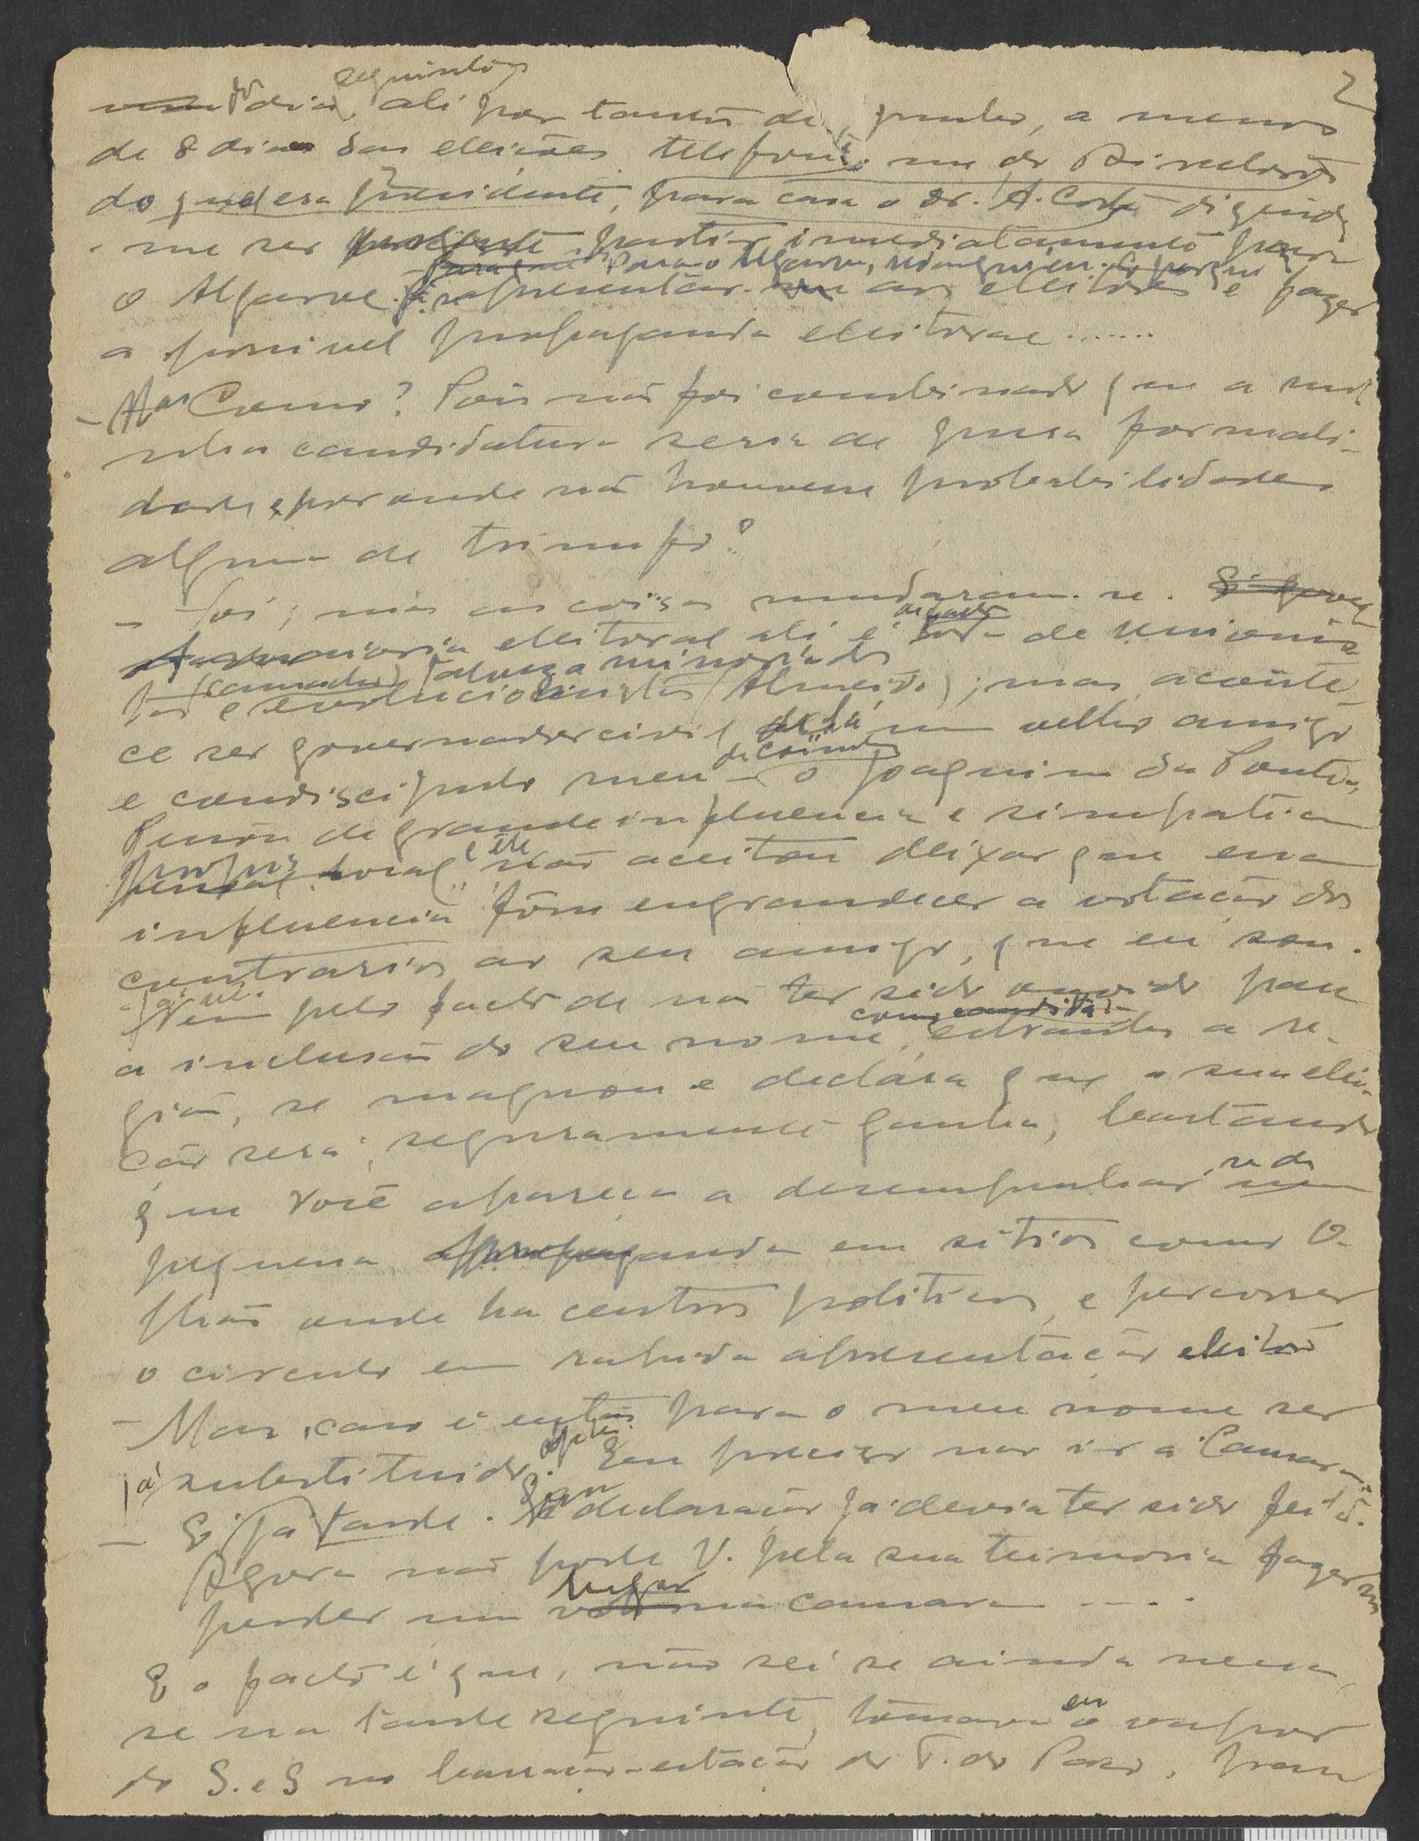 2
seguintes
dias, ali por tantos de junho, a menos
de 8 dias das eleições telefona-me do Directorio
do que era presidente, para casa o Dr. A. Costa dizendo
-me ser urgente partir imediatamente para
para o Algarve,
o Algarve representar-me aos eleitores e fazer
a possivel propaganda eleitoral.......
- Mas Como? Pois não foi combinado que a mi
nha candidatura seria de pura formali-
dade, e por onde não houvesse probabilidades
alguma de triumfo?
- Foi; mas as coisas mudaram-se.
maioria eleitoral ali é de unionis
(camacho) e a minoria de
tas e evolucionistas (Almeida); mas aconte-
ce ser governador civil de lá um velho amigo
de Coimbra
e condiscipulo meu - o Joaquim da Ponte,
Pessôa de grande influencia e simpatia
pessoal local e este não aceitou deixar que essa
influencia fôsse engrandecer a votação dos
contrarios ao seu amigo, que eu sou.
Nem pelo facto de não ter sido ouvido para
como candidato
a inclusão do seu nome, estranho a re-
gião, se magoou e declára que a sua elei-
ção será seguramente ganha, bastando
que você apareça a desempenhar-se da
pequena propaganda em sitios como O-
lhão onde ha centros politicos, e percorrer
o circulo em rapida apresentação eleitoral
- Mas, caso é então para o meu nome ser
já substituido. Eu preciso não ir á Camara.
- É já tarde. Essa declaração já devia ter sido feita.
Agora não póde V. pela sua teimosia fazer-nos
lugar
perder um na camara ....
E o facto é que, não sei se ainda nessa,
se na tarde seguinte, tomava eu o vapor
do S. e S no barracão-estação do T. do Paço, para